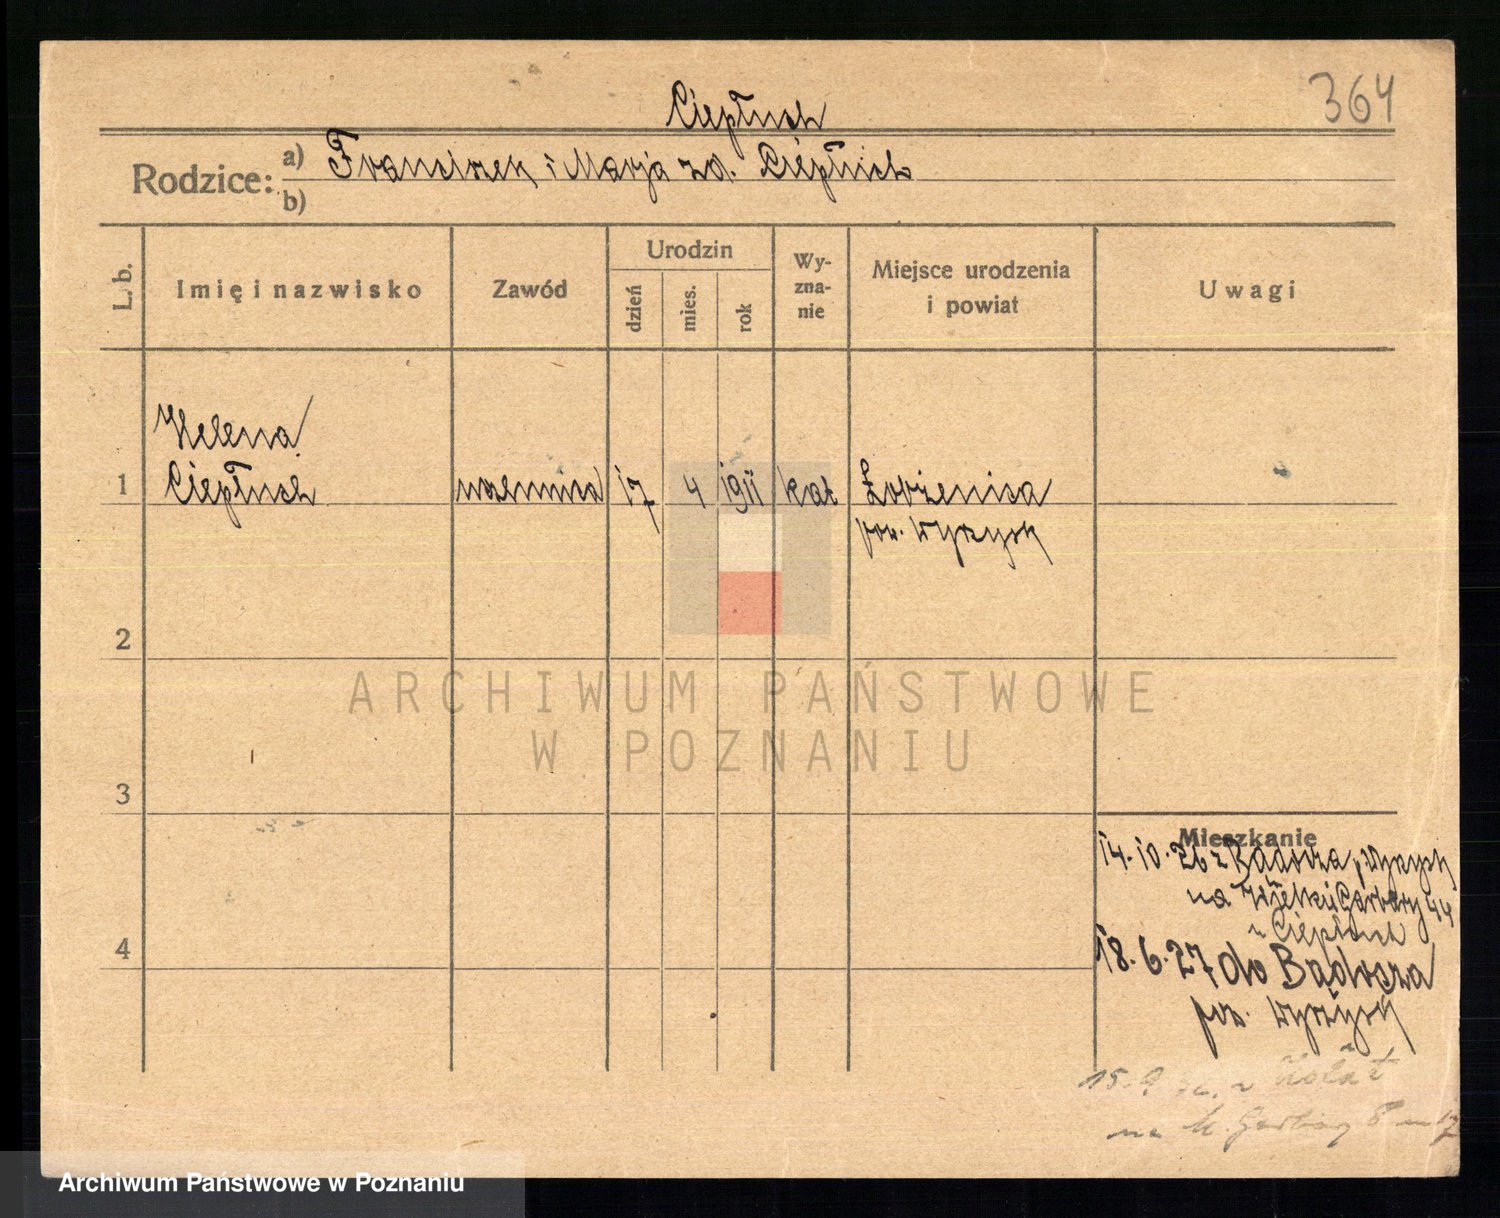 364
Ciepłuch
Rodzice: a) Franciszek i Marja zd. Ciepłuch
b)
L. b.
Imię i nazwisko
Zawód
Urodzin
dzień
mies.
rok
Wy-
zna-
nie
Miejsce urodzenia
i powiat
Uwagi
Helena
1 Ciepłuch uczennica 17 4 1911 kat Łobżenica
pow. Wyrzysk
2
ARCHIWUM PAŃSTWOWE
W POZNANIU
3
Mieszkanie
14.10.26 z Bądecza, Wyrzysk
na Wielkie Garbary 44
u Ciepłuch
4
18.6.27 do Bądecza
pow. Wyrzysk
15.9
na M. Garbary 8 m 17
Archiwum Państwowe w Poznaniu